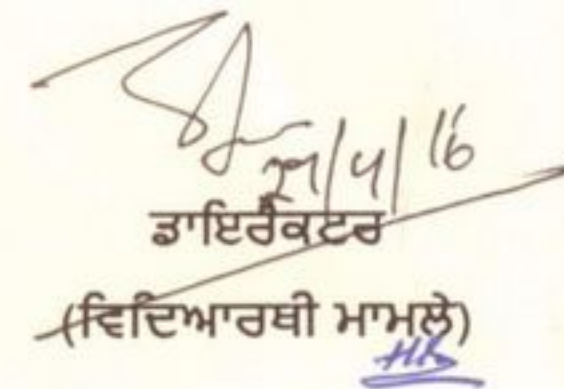 29/4/16
ਡਾਇਰੈਕਟਰ
(ਵਿਦਿਆਰਥੀ ਮਾਮਲੇ)